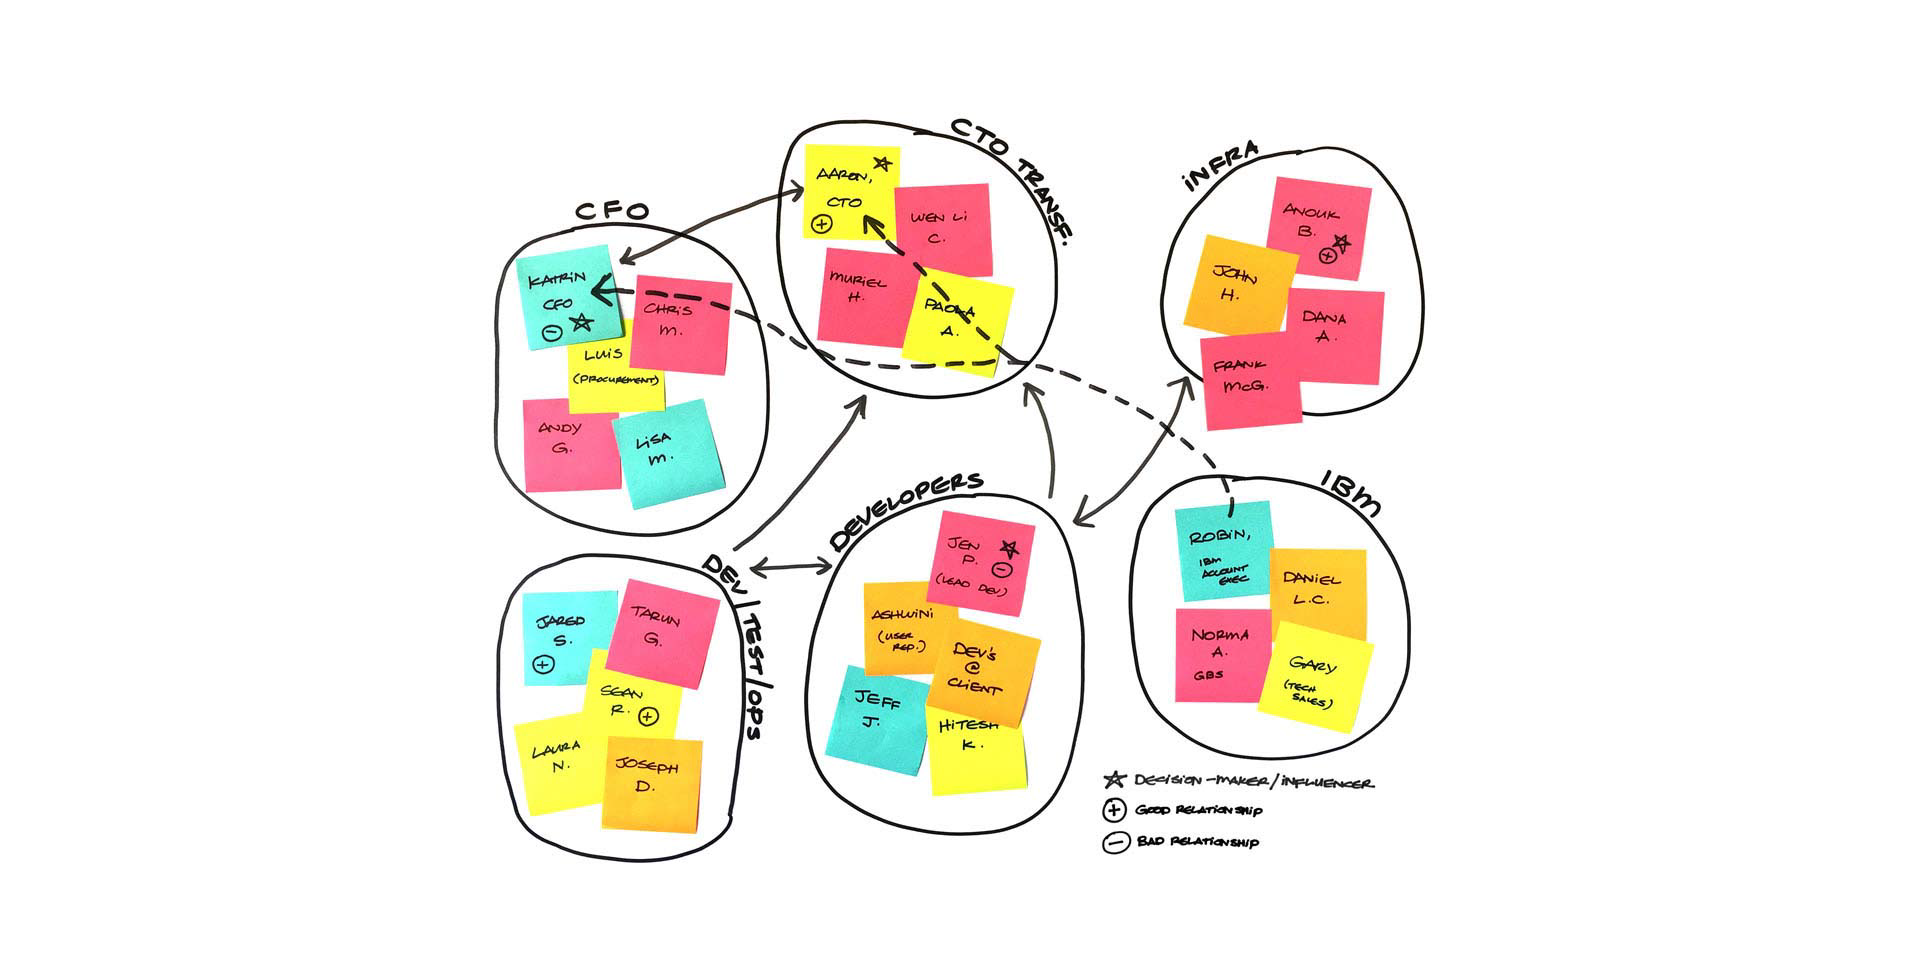 CFO
KATRIN
CFO
CHRIS
M.
LUIS
(PROCUREMENT)
ANDY
G.
LISA
M.
CTO TRANSF.
AARON,
CTO
WEN LI
C.
MURIEL
H.
PAOLA
A.
INFRA
ANOUK
B.
JOHN
H.
DANA
A.
FRANK
McG.
DEV/TEST/OPS
JARED
S.
TARUN
G.
SEAN
R.
LAURA
N.
JOSEPH
D.
DEVELOPERS
JEN
P.
(LEAD DEV)
ASHWINI
(USER
REP.)
DEV's
@
CLIENT
JEFF
J.
HITESH
K.
IBM
ROBIN,
IBM
ACCOUNT
EXEC
DANIEL
L.C.
NORMA
A.
GBS
GARY
(TECH
SALES)
DECISION-MAKER/INFLUENCER
GOOD RELATIONSHIP
BAD RELATIONSHIP